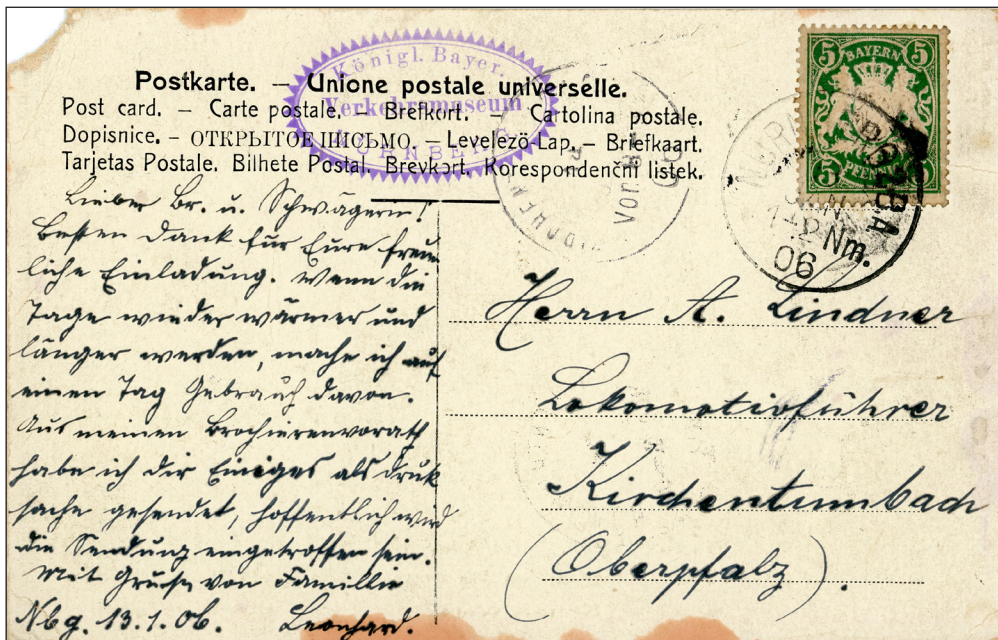 Postkarte. – Unione postale universelle.
Post card. – Carte postale. – Brefkort. – Cartolina postale.
Dopisnice. – ОТКРЫТОЕ ПИСЬМО. – Levelező-Lap. – Briefkaart.
Tarjetas Postale. Bilhete Postal. Brevkort. Korespondenční listek.
Königl. Bayer.
Verkehrsmuseum
NÜRNBERG
5 BAYERN 5
5 PFENNIG 5
1-2 Nm.
06
Vorm
Lieber Br. u. Schwägerin!
Besten Dank für Eure freun
liche Einladung. Wenn die
Tage wieder wärmer und
länger werden, mache ich auf
einen Tag Gebrauch davon.
Aus meinen Brochierenvorath
habe ich dir Einiges als Druk
sache gesendet, hoffentlich wird
die Sendung eingetroffen sein.
Mit Gruß von Famillie
Nbg. 13.1.06. Leonhard.
Herrn A. Lindner
Lokomotivführer
Kirchentumbach
(Oberpfalz).